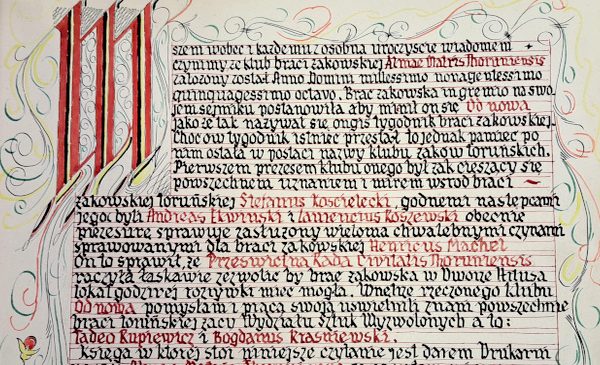 Wszem wobec i każdemu z osobna uroczyście wiadomem
czynimy że klub braci żakowskiej Almae Matris Thoruniensis
założony został Anno Domini millessimo nonagentessimo
quinquagessimo octavo. Brać żakowska in gremio na swo
jem sejmiku postanowiła aby mienił on się Od nowa
jako że tak nazywał się ongiś tygodnik braci żakowskiej.
Choć ów tygodnik istnieć przestał to jednak pamięć po
nim ostała w postaci nazwy klubu żaków toruńskich.
Pierwszem prezesem klubu onego był żak cieszący się
powszechnem uznaniem i mirem wśród braci
żakowskiej toruńskiej Stefanus Kościelecki, godnemi następcami
jego byli Andreas Elwinski i Laurencius Koszewski obecnie
prezesurę sprawuje zasłużony wieloma chwalebnymi czynami
sprawowanymi dla braci żakowskiej Henricus Machel
On to sprawił że Prześwietna Rada Civitatis Thoruniensis
raczyła łaskawie zezwolić by brać żakowska w Dworze Artusa
lokal godziwej rozrywki mieć mogła. Wnętrze rzeczonego klubu
Od nowa pomysłam i pracą swoją uświetnili znani powszechnie
braci toruńskiej żacy Wydziału Sztuk Wyzwolonych a to:
Tadeo Kupiewicz i Bogdanus Kraśniewski.
Księga w której stoi niniejsze czytanie jest darem Drukarni